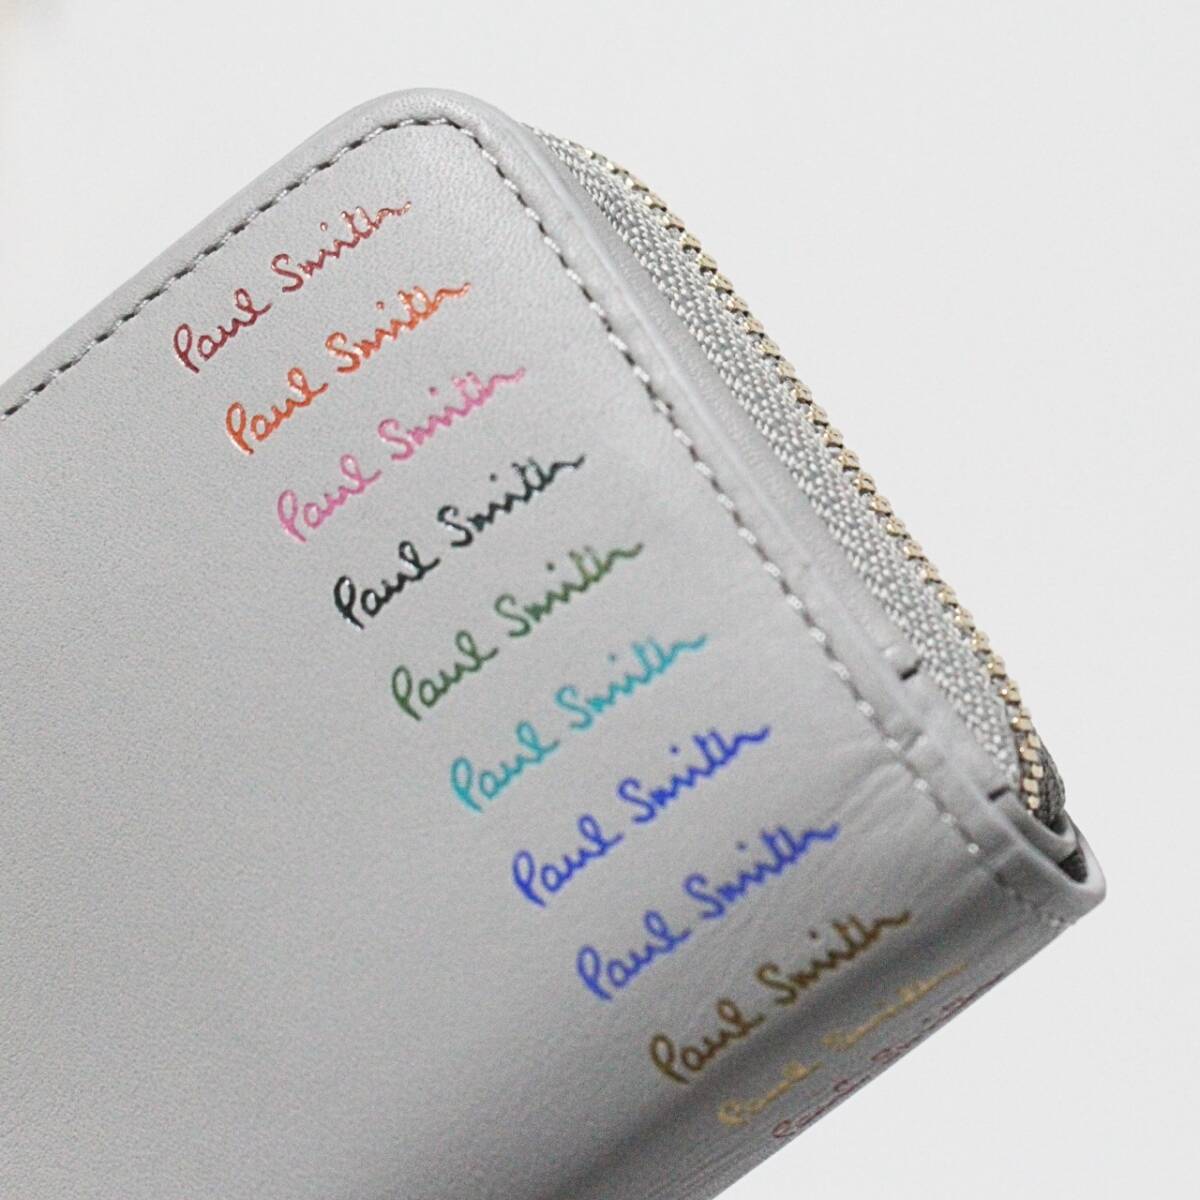 Paul Smith
Paul Smith
Paul Smith
Paul Smith
Paul Smith
Paul Smith
Paul Smith
Paul Smith
Paul Smith
Paul Smith
Paul Smith